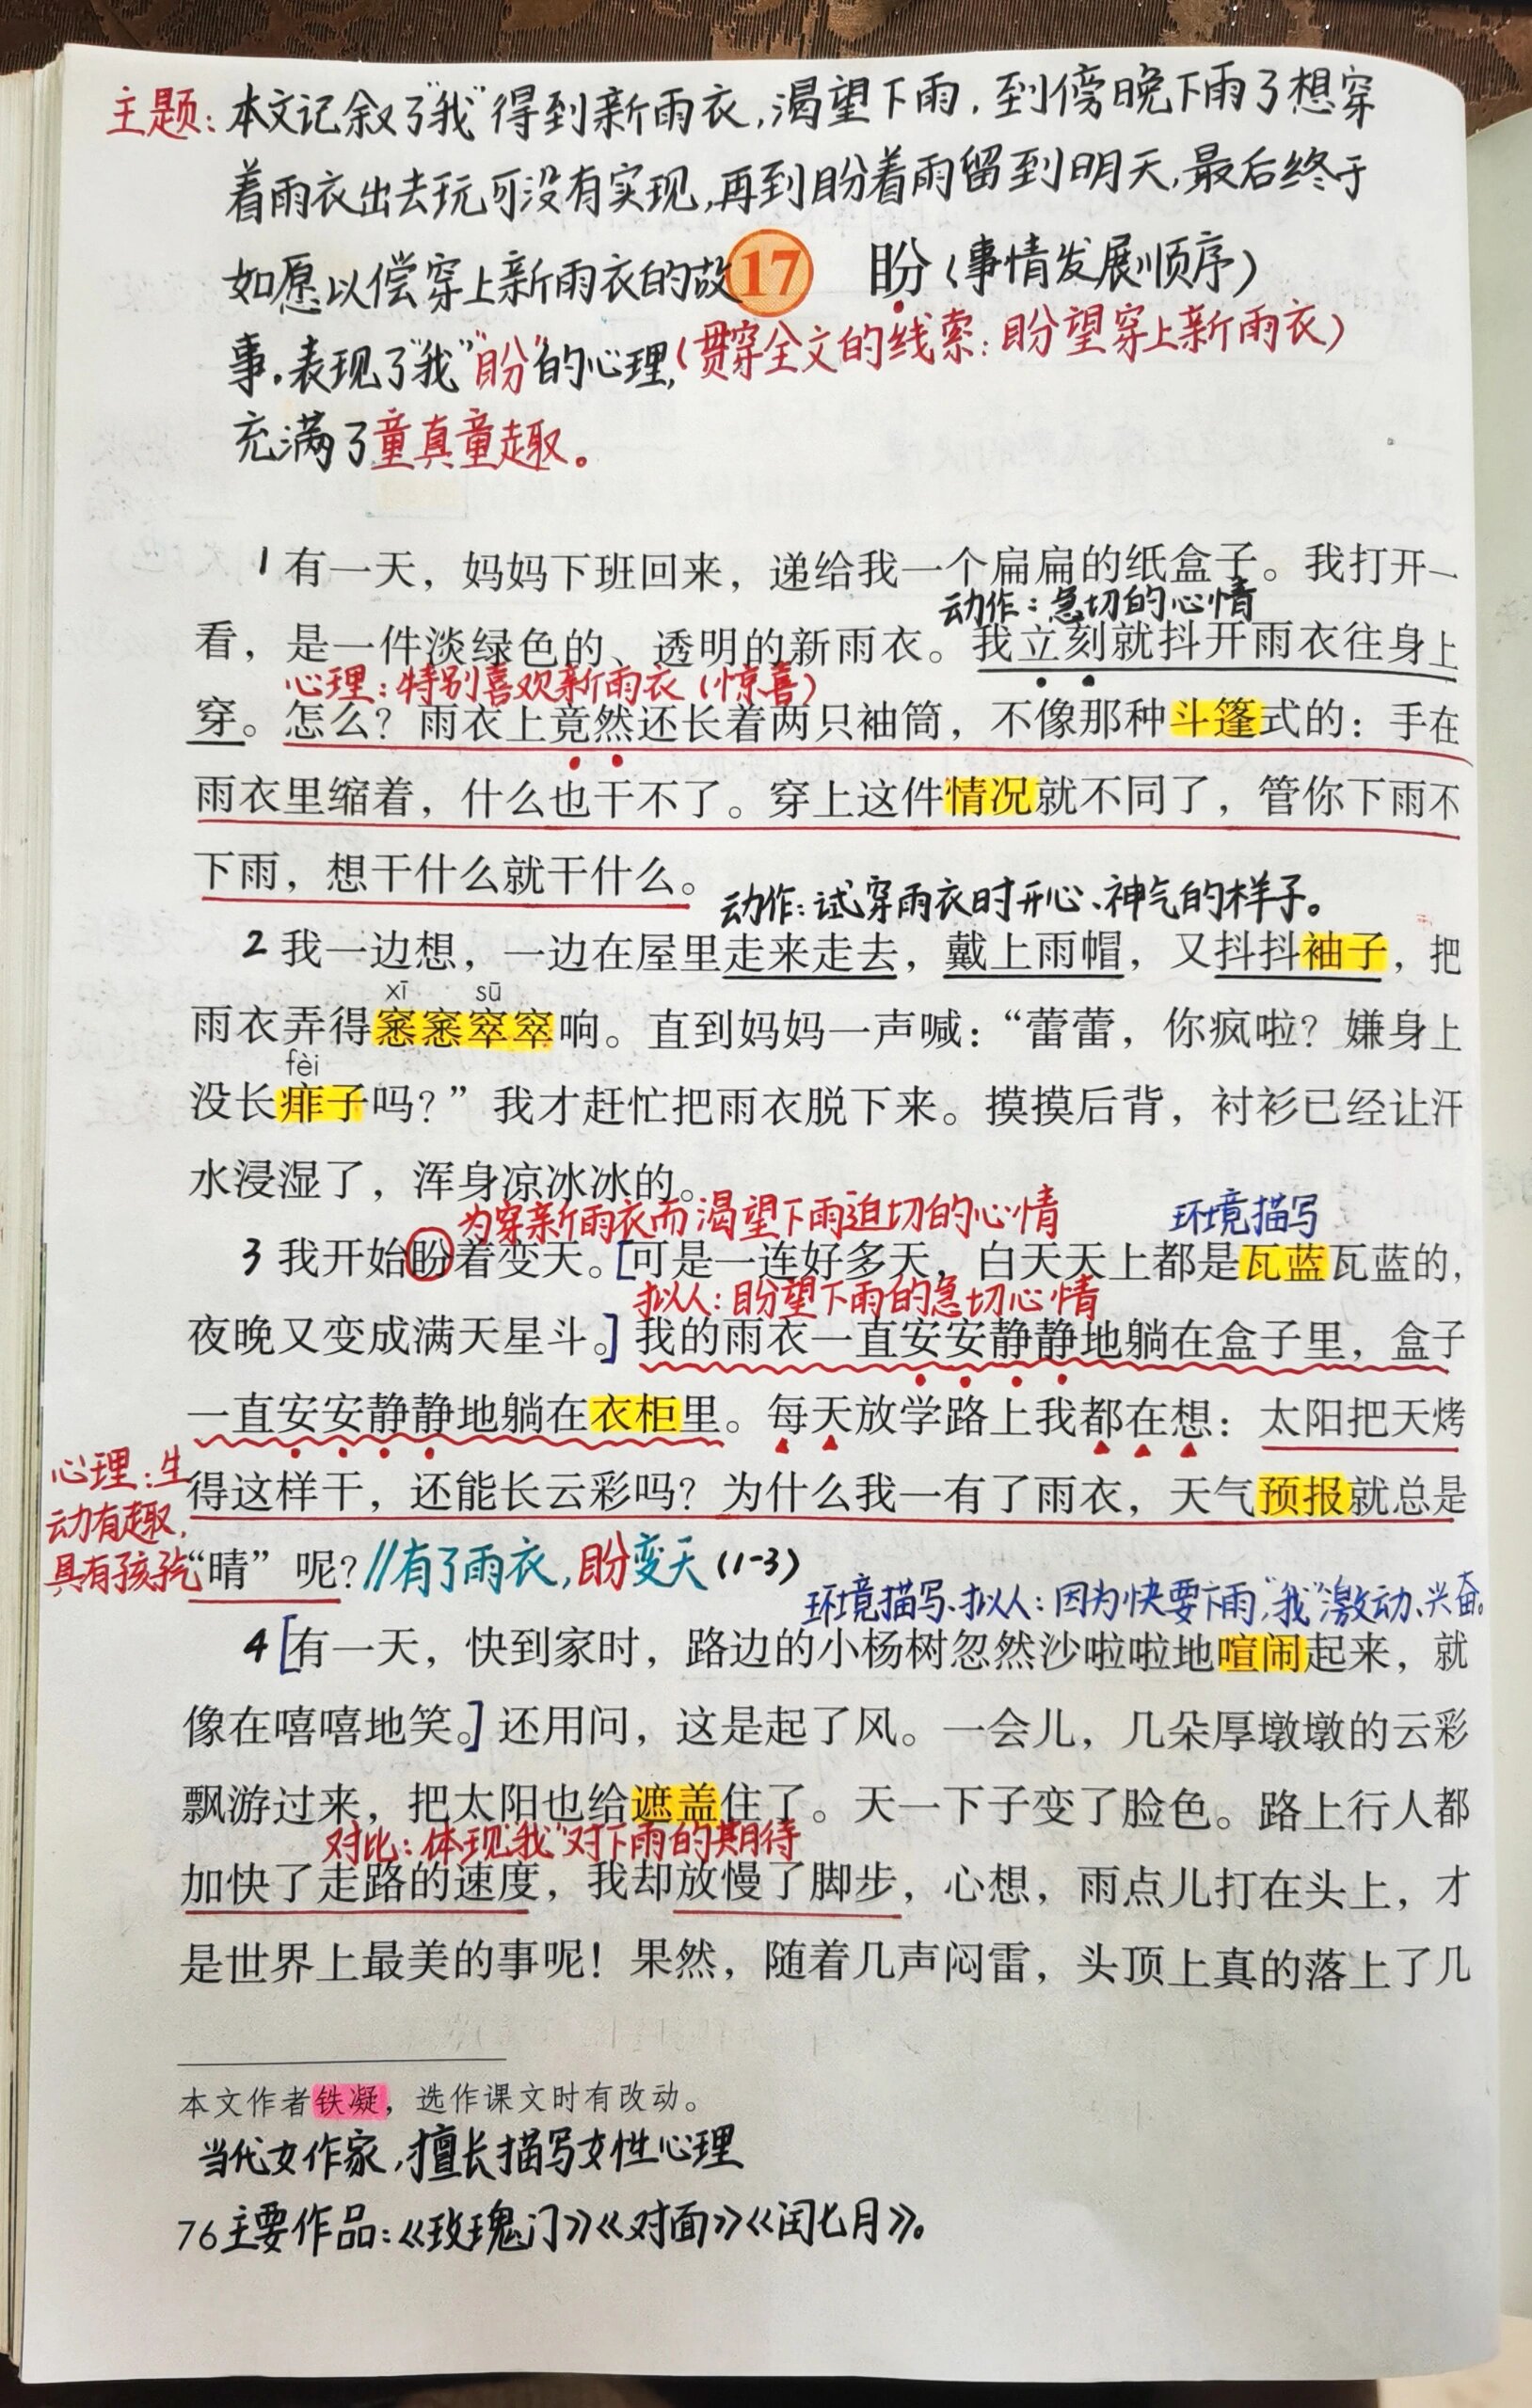 主题：本文记叙了“我”得到新雨衣，渴望下雨，到傍晚下雨了想穿
着雨衣出去玩可没有实现，再到盼着雨留到明天，最后终于
如愿以偿穿上新雨衣的故
17 盼（事情发展顺序）
事。表现了“我”“盼”的心理，
（贯穿全文的线索：盼望穿上新雨衣）
充满了童真童趣。
1 有一天，妈妈下班回来，递给我一个扁扁的纸盒子。我打开一
动作：急切的心情
看，是一件淡绿色的、透明的新雨衣。我立刻就抖开雨衣往身上
心理：特别喜欢新雨衣（惊喜）
穿。怎么？雨衣上竟然还长着两只袖筒，不像那种斗篷式的：手在
雨衣里缩着，什么也干不了。穿上这件情况就不同了，管你下雨不
下雨，想干什么就干什么。
动作：试穿雨衣时开心、神气的样子。
2 我一边想，一边在屋里走来走去，戴上雨帽，又抖抖袖子，把
xī sū
雨衣弄得窸窸窣窣响。直到妈妈一声喊：“蕾蕾，你疯啦？嫌身上
fèi
没长痱子吗？”我才赶忙把雨衣脱下来。摸摸后背，衬衫已经让汗
水浸湿了，浑身凉冰冰的。
为穿新雨衣而渴望下雨迫切的心情 环境描写
3 我开始盼着变天。[可是一连好多天，白天天上都是瓦蓝瓦蓝的，
拟人：盼望下雨的急切心情
夜晚又变成满天星斗。]我的雨衣一直安安静静地躺在盒子里，盒子
一直安安静静地躺在衣柜里。每天放学路上我都在想：太阳把天烤
心理：生
动有趣，
具有孩子气
得这样干，还能长云彩吗？为什么我一有了雨衣，天气预报就总是
“晴”呢？//有了雨衣，盼变天（1-3）
环境描写、拟人：因为快要下雨，“我”激动、兴奋。
4 [有一天，快到家时，路边的小杨树忽然沙啦啦地喧闹起来，就
像在嘻嘻地笑。]还用问，这是起了风。一会儿，几朵厚墩墩的云彩
飘游过来，把太阳也给遮盖住了。天一下子变了脸色。路上行人都
对比：体现“我”对下雨的期待
加快了走路的速度，我却放慢了脚步，心想，雨点儿打在头上，才
是世界上最美的事呢！果然，随着几声闷雷，头顶上真的落上了几
本文作者铁凝，选作课文时有改动。
当代女作家，擅长描写女性心理
76 主要作品：《玫瑰门》《对面》《闰七月》。